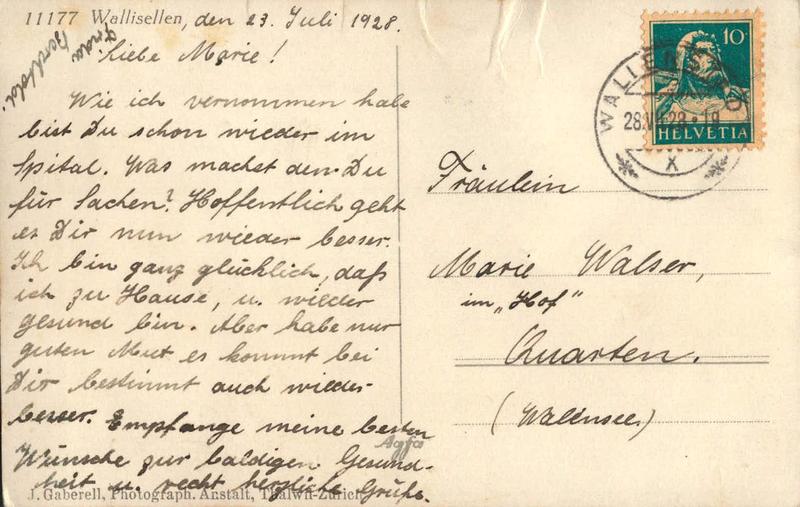 11177 Wallisellen, den 23. Juli 1928.
Liebe Marie!
Wie ich vernommen habe
bist Du schon wieder im
Spital. Was machst denn Du
für Sachen? Hoffentlich geht
es Dir nun wieder besser.
Ich bin ganz glücklich, daß
ich zu Hause, u. wieder
gesund bin. Aber habe nur
guten Mut es kommt bei
Dir bestimmt auch wieder
besser. Empfange meine besten
Wünsche zur baldigen Gesund-
heit u. recht herzliche Grüße.
Frida
Berchtold.
Agfa
J. Gaberell, Photograph. Anstalt, Thalwil-Zürich
10
HELVETIA
WALLENSTAD
28.VII.28.-19
X
Fräulein
Marie Walser,
im "Hof"
Quarten.
(Wallensee.)